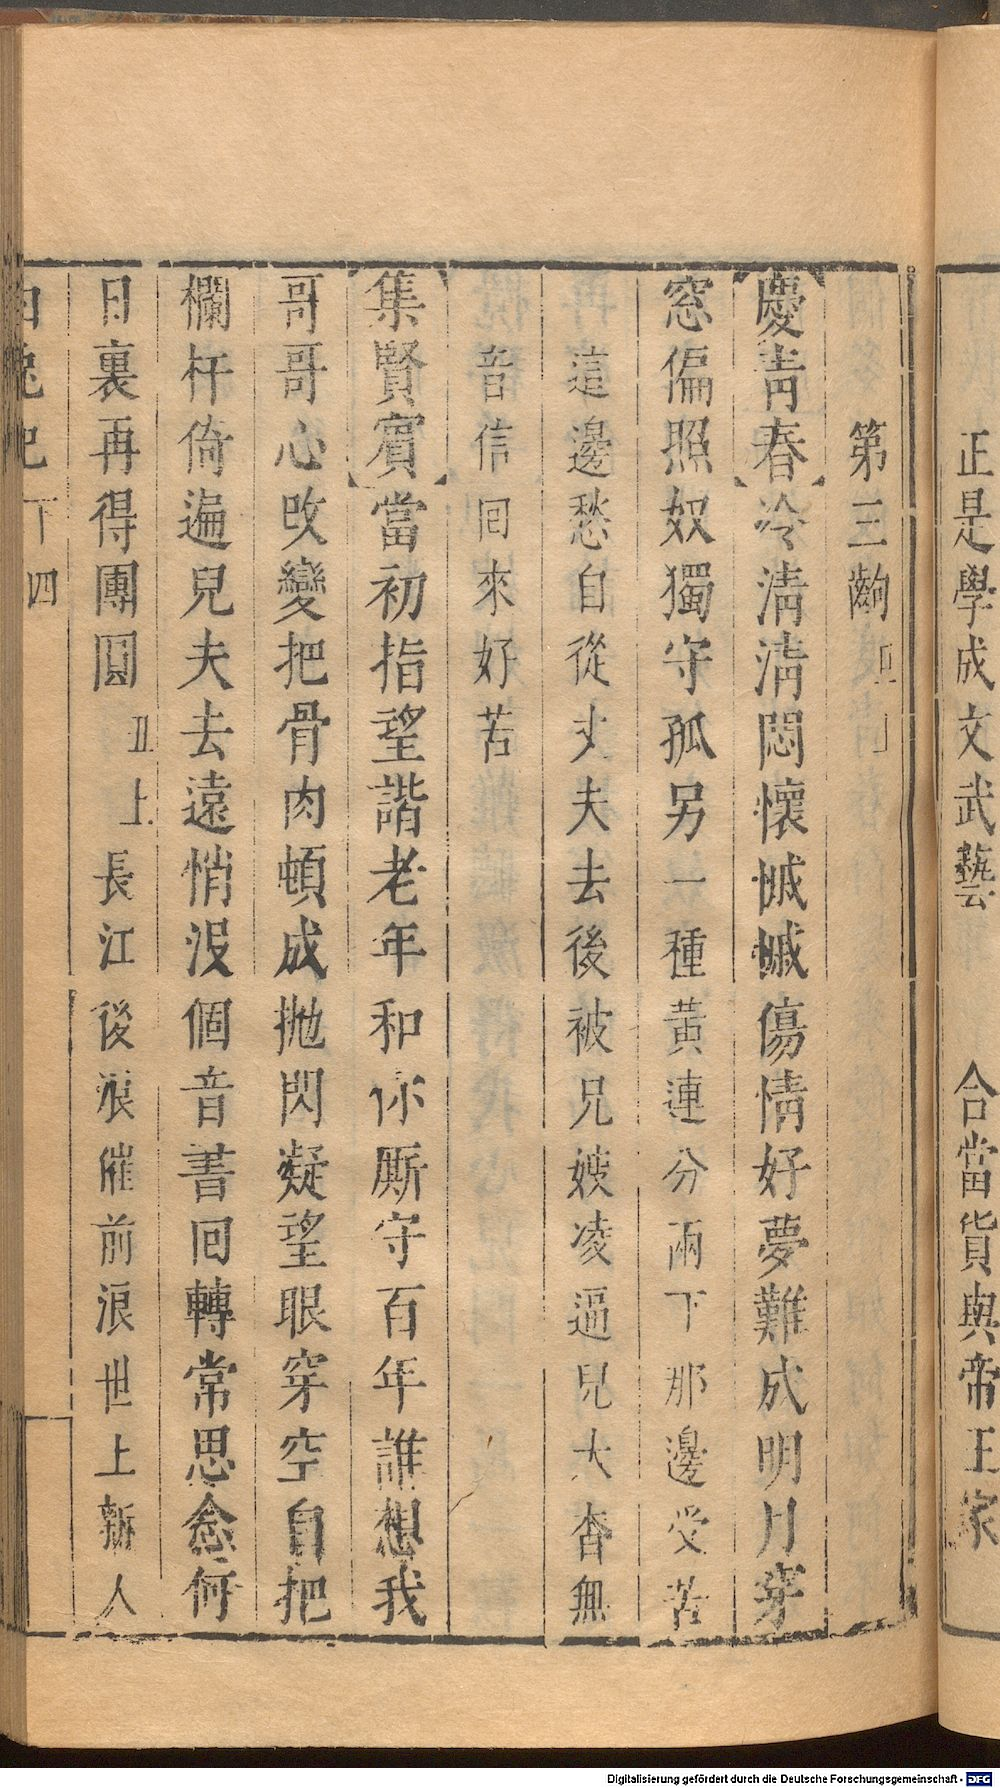 正是學成文武藝　合當貨與帝王家
第三齣
慶青春冷清清悶懷慽慽傷情好夢難成明月穿
窓偏照奴獨守孤另一種黄連分兩下那邊受苦
這邊愁自從丈夫去後被兄嫂凌逼兒夫杳無
音信回來好苦
集賢賓當初指望諧老年和你厮守百年誰想我
哥哥心改變把骨肉頓成抛閃凝望眼穿空自把
欄杆倚遍兒夫去遠悄没個音書回轉常思念何
日裏再得團圓 丑上 長江後浪催前浪世上新人
白兔記 下 四
Digitalisierung gefördert durch die Deutsche Forschungsgemeinschaft - DFG